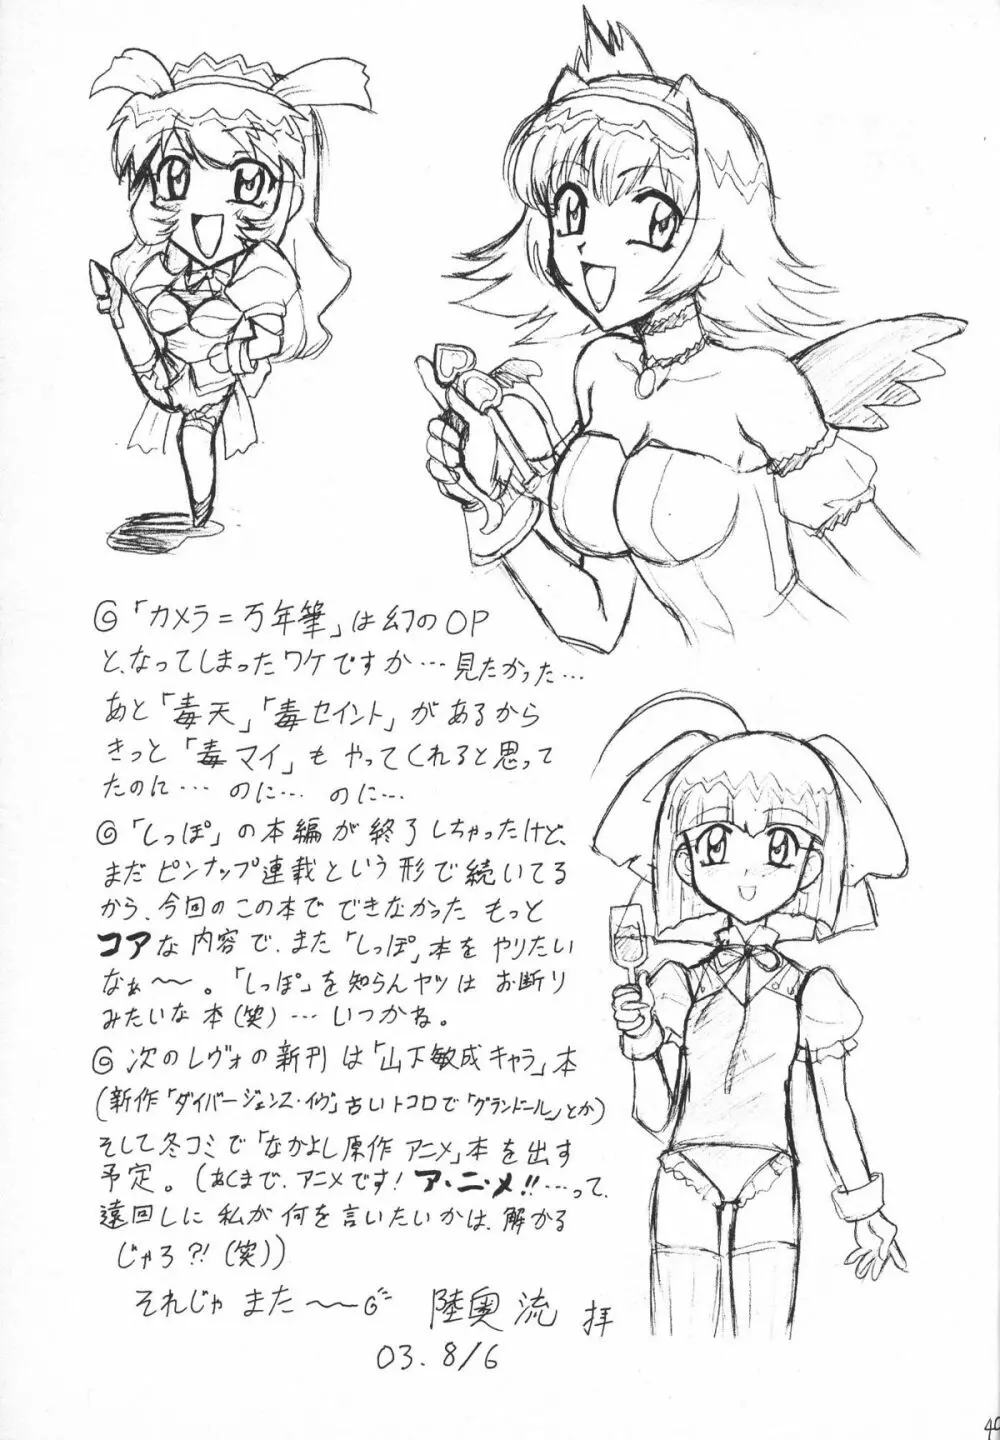 ◎「カメラ=万年筆」は幻のOP
と、なってしまったワケですか…見たかった…
あと「毒天」「毒セイント」があるから
きっと「毒マイ」もやってくれると思って
たのに… のに… のに…
◎「しっぽ」の本編が終了しちゃったけど、
まだピンナップ連載という形で続いてる
から、今回のこの本でできなかったもっと
コアな内容で、また「しっぽ」本をやりたい
なぁ〜〜。「しっぽ」を知らんヤツはお断り
みたいな本(笑)…いつかね。
◎次のレヴォの新刊は「山下敏成キャラ」本
(新作「ダイバージェンス・イヴ」古いトコロで「グランドール」とか)
そして冬コミで「なかよし原作アニメ」本を出す
予定。(あくまで、アニメです!ア・ニ・メ!!…って、
遠回しに私が何を言いたいかは、解かる
じゃろ?!(笑))
それじゃまた〜〜 陸奥流 拝
03.8/6